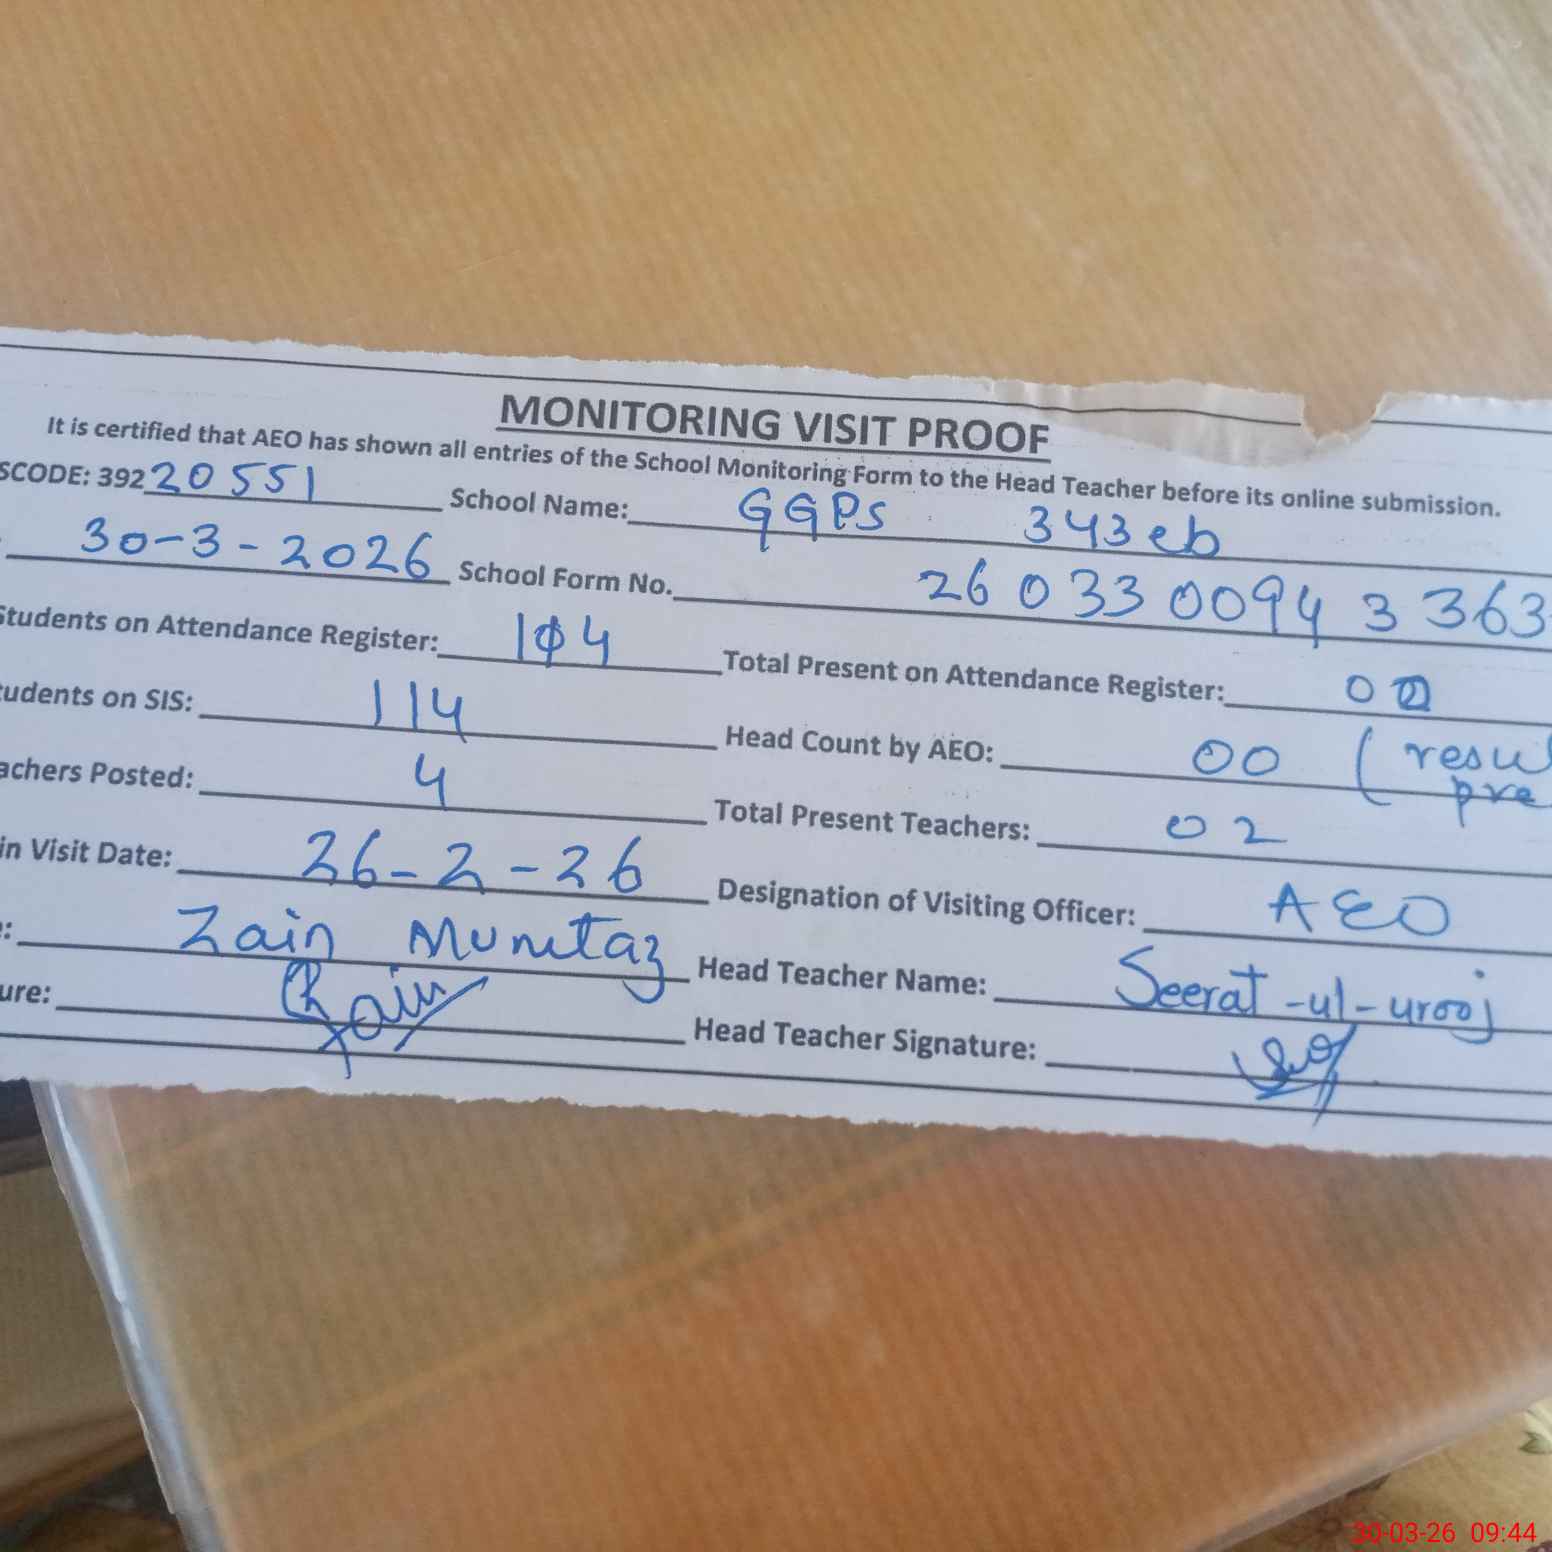 MONITORING VISIT PROOF
It is certified that AEO has shown all entries of the School Monitoring Form to the Head Teacher before its online submission.
SCODE: 39220551 School Name: GGPS 343eb
30-3-2026 School Form No. 26 0 33 0094 3 363
Students on Attendance Register: 104 Total Present on Attendance Register: 00
tudents on SIS: 114 Head Count by AEO: 00 (resu
pre
achers Posted: 4 Total Present Teachers: 02
in Visit Date: 26-2-26 Designation of Visiting Officer: AEO
e: Zain Mumtaz Head Teacher Name: Seerat-ul-urooj
ure: Zain Head Teacher Signature:
30-03-26 09:44